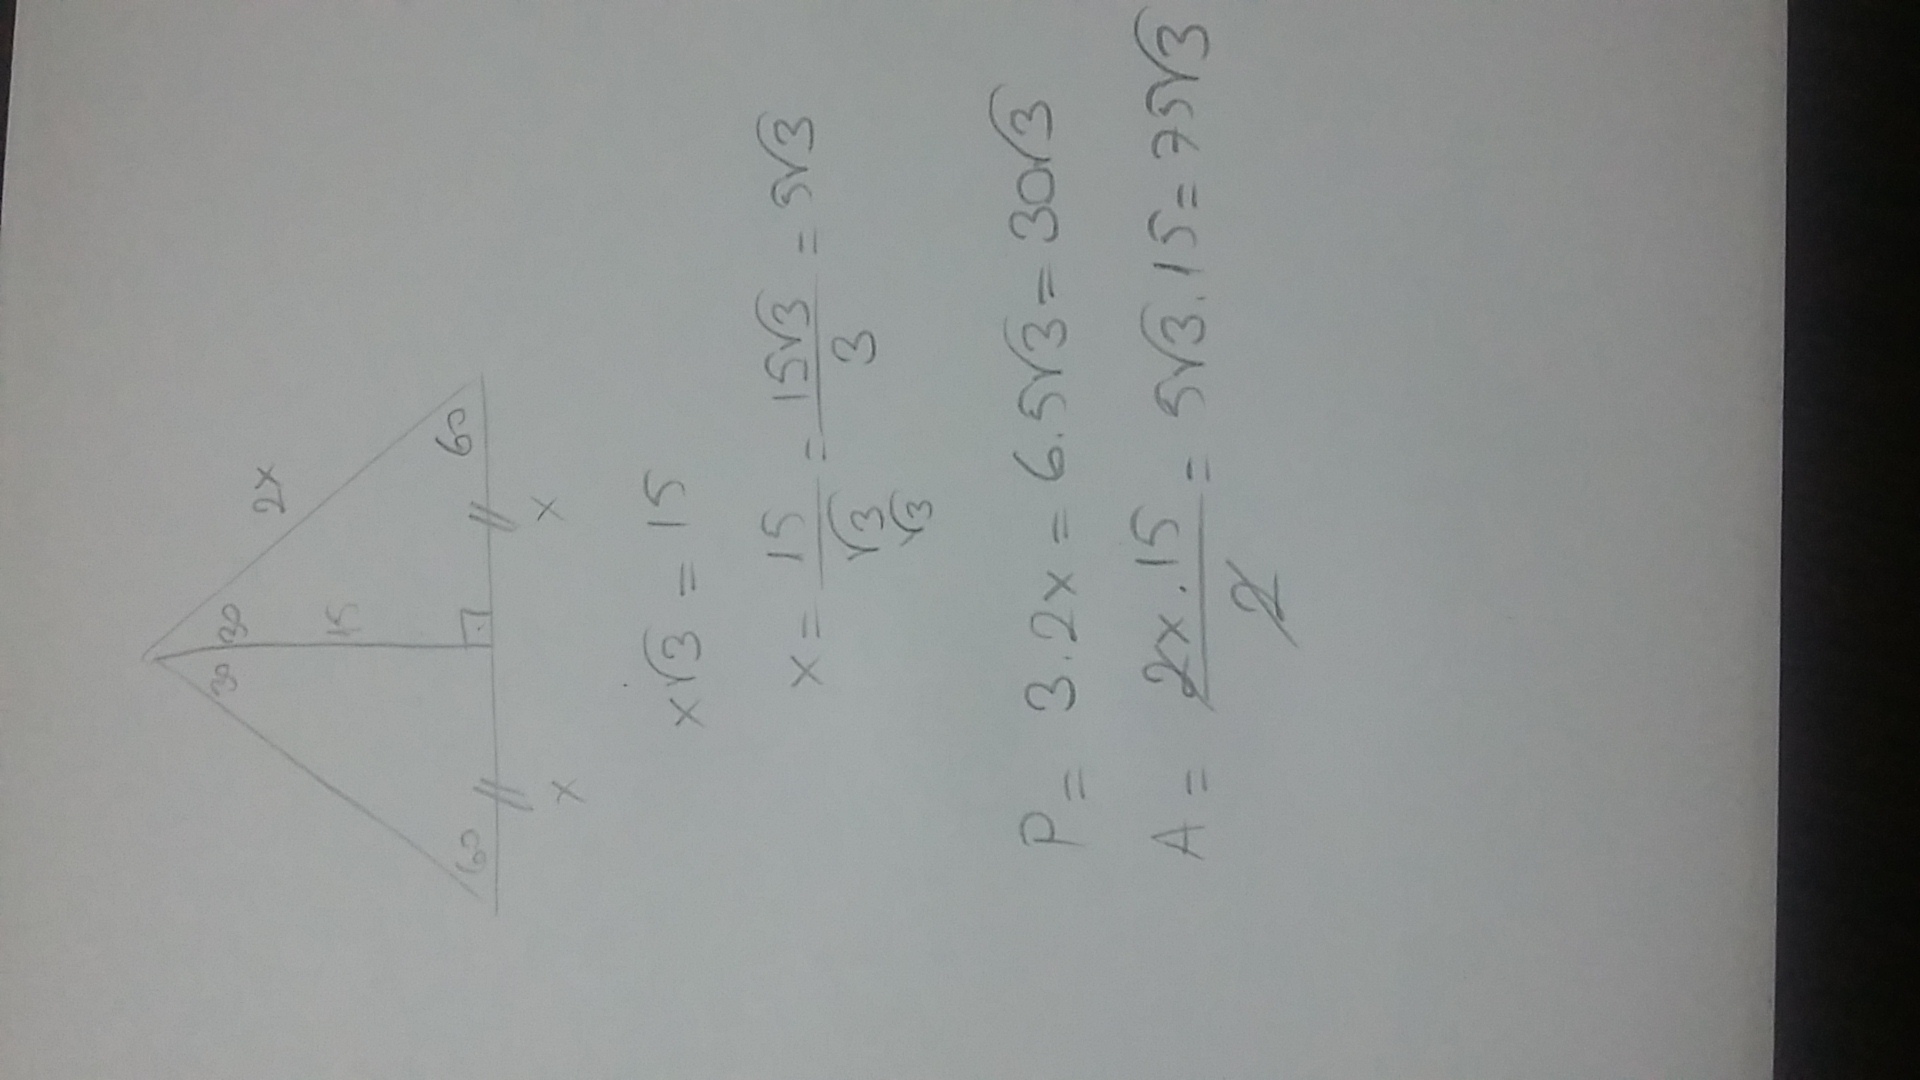 30 30
2x
15
60 60
x x
x√3 = 15
x = 15/√3 √3 = 15√3/3 = 5√3
P = 3.2x = 6.5√3 = 30√3
A = 2x.15/2 = 5√3.15 = 75√3